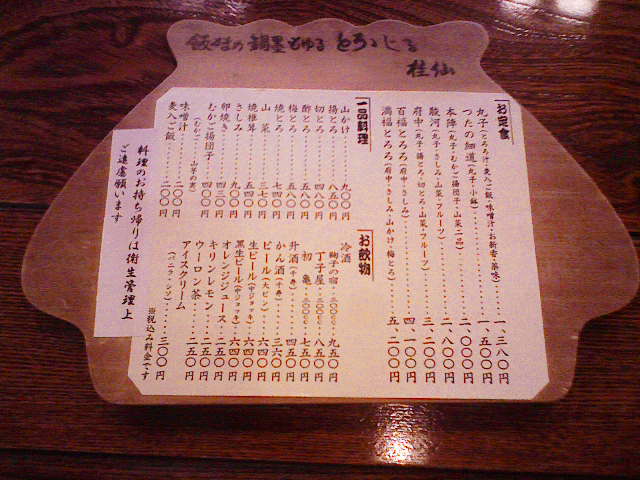 桂仙
お定食
丸子(とろろ汁・麦入ご飯・味噌汁・お新香・薬味)………一、三八〇円
つたの細道(丸子・小鉢)………一、五〇〇円
本陣(丸子・むかご揚団子・山菜二品)………二、〇〇〇円
駿河(丸子・さしみ・山菜・フルーツ)………二、八〇〇円
府中(丸子・揚とろ・切とろ・山菜・フルーツ)………三、二〇〇円
百福とろろ(府中・さしみ)………四、一〇〇円
満福とろろ(府中・さしみ・山かけ・梅とろ)………五、二〇〇円
一品料理
山かけ………九〇〇円
揚とろ………八五〇円
切とろ………四八〇円
梅とろ………五八〇円
酢とろ………五八〇円
焼とろ………七四〇円
山菜………三一〇円
焼椎茸………五四〇円
さしみ………九〇〇円
卵焼き………四〇〇円
むかご揚団子………四〇〇円
(むかご……山芋の実)
味噌汁………二〇〇円
麦入ご飯………二〇〇円
お飲物
冷酒
鞠子の宿・三〇〇cc・九五〇円
丁子屋・三〇〇cc・八五〇円
初亀・三〇〇cc・七五〇円
升酒………四五〇円
かん酒………三六〇円
ビール(大ビン)………六四〇円
生ビール(中ジョッキ)………六四〇円
黒生ビール(中ジョッキ)………六四〇円
オレンジジュース………二五〇円
キリンレモン………二五〇円
ウーロン茶………二五〇円
アイスクリーム………三〇〇円
(バニラ・シソ)
※税込み料金です
料理のお持ち帰りは衛生管理上
ご遠慮願います